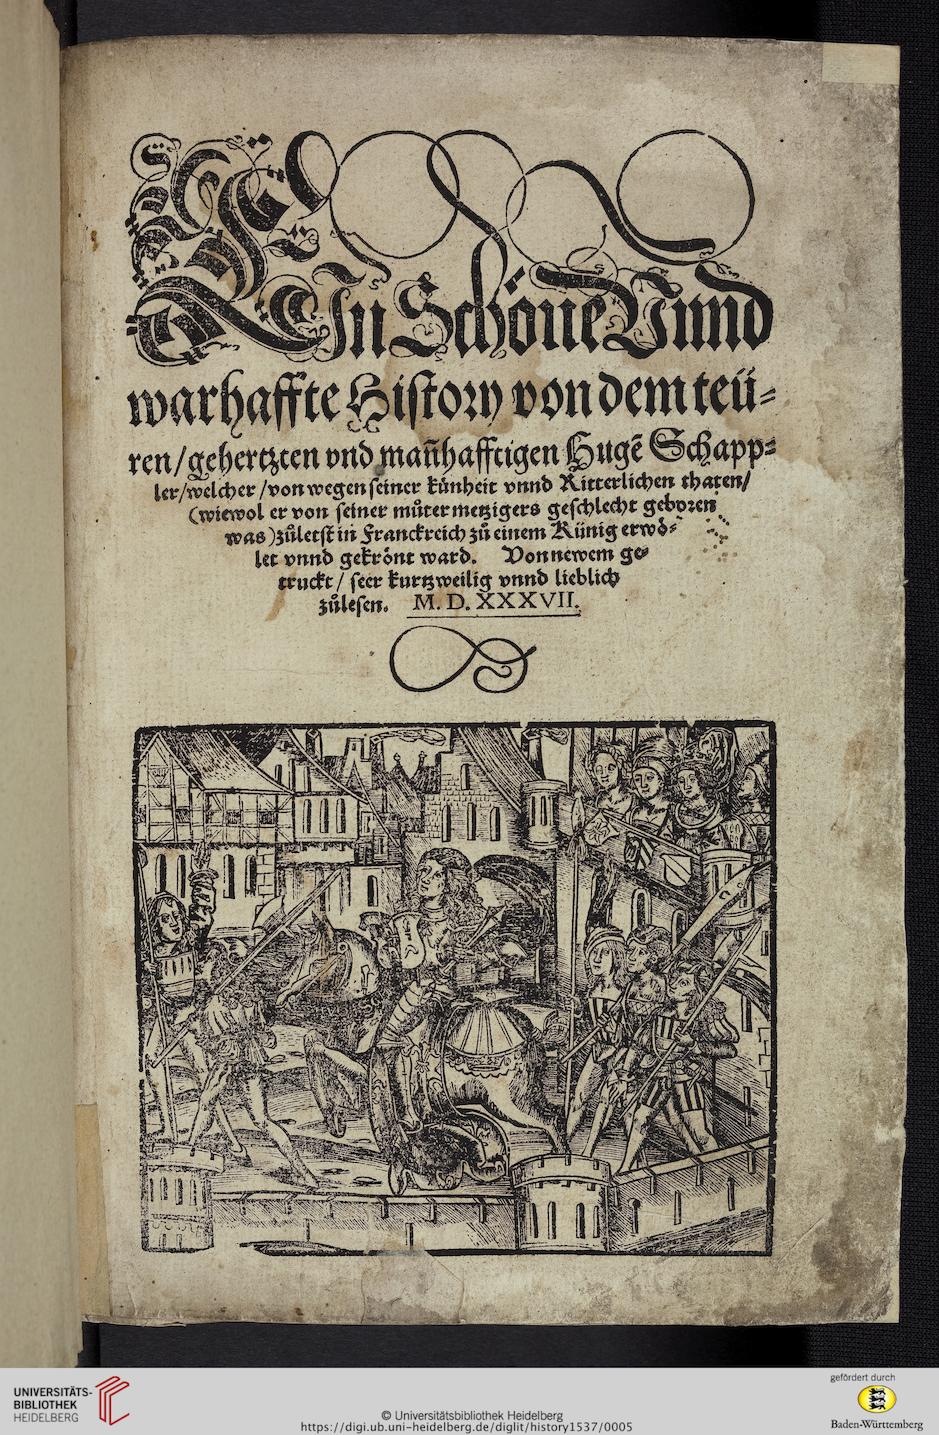 EIn Schöne Vnnd
warhaffte History von dem teü⸗
ren / gehertzten vnd mañhafftigen Hugẽ Schapp⸗
ler / welcher / von wegen seiner künheit vnnd Ritterlichen thaten /
(wiewol er von seiner můter metzigers geschlecht geboren
was) zůletst in Franckreich zů einem Künig erwö⸗
let vnnd gekrönt ward. Von newem ge⸗
truckt / seer kurtzweilig vnnd lieblich
zůlesen. M. D. XXXVII.
UNIVERSITÄTS-
BIBLIOTHEK
HEIDELBERG
© Universitätsbibliothek Heidelberg
https://digi.ub.uni-heidelberg.de/diglit/history1537/0005
gefördert durch
Baden-Württemberg